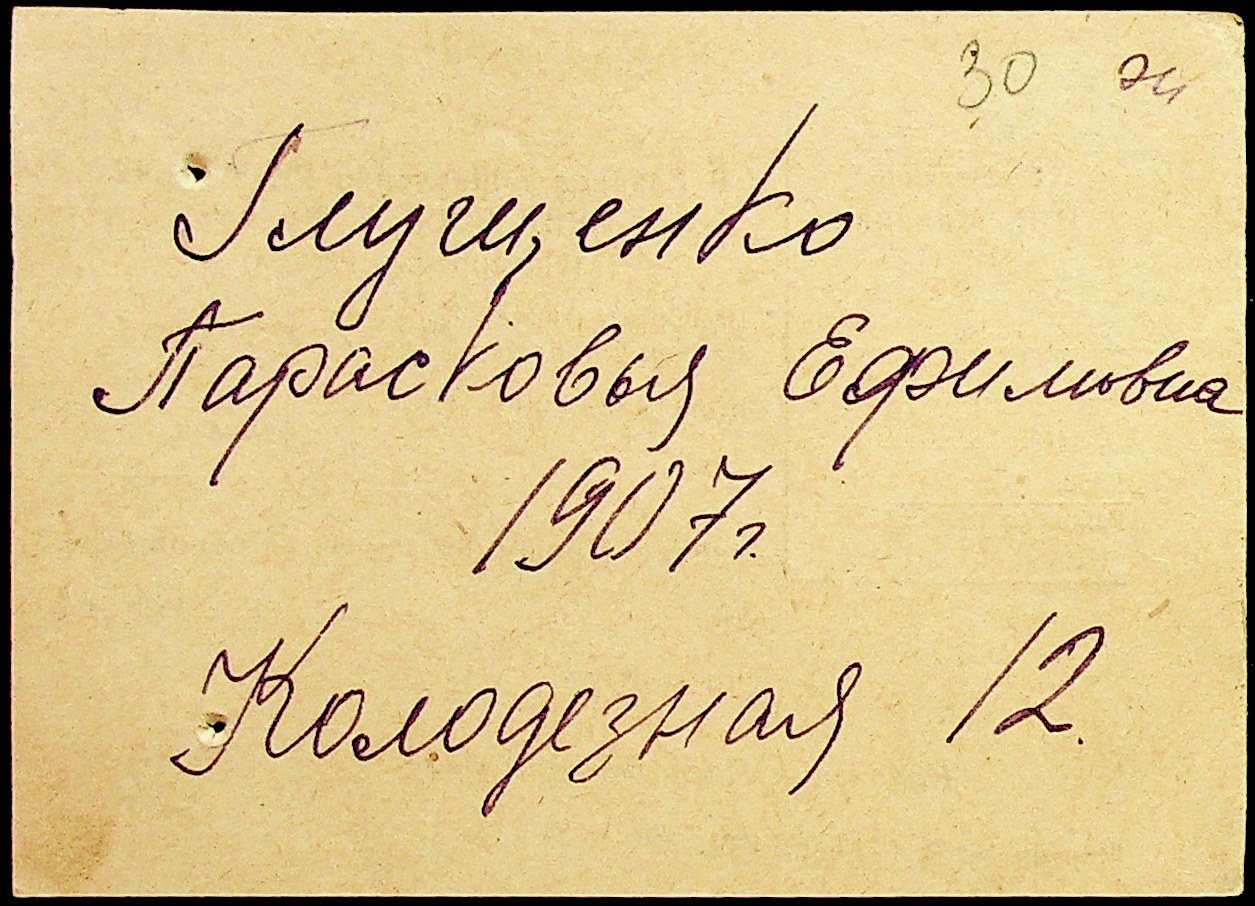 30
Глущенко
Парасковья Ефимовна
1907 г.
Колодезная 12.